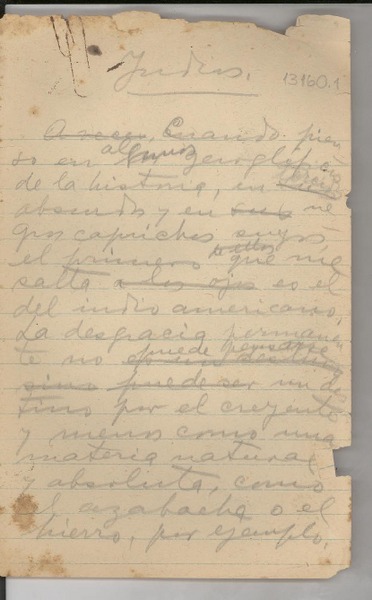 Indios.
13160.1
A veces, Cuando pien
so en algunos jeroglíficos
de la historia, en
absurdos y en sus ne
gros caprichos suyos,
el primero de ellos que me
salta a los ojos es el
del indio americano.
La desgracia permanen
te no puede pensarse
sino puede ser un des
tino por el creyente
y menos como una
materia natural
y absoluta, como
el azabache o el
hierro, por ejemplo.